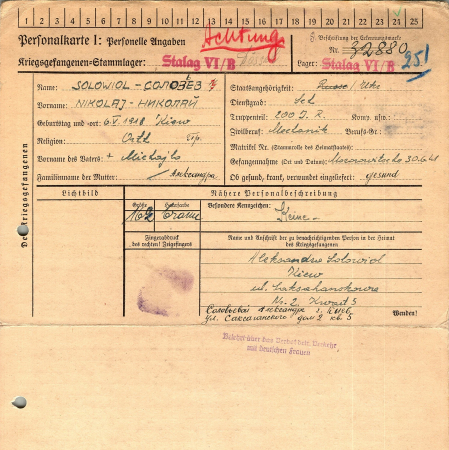 1 2 3 4 5 6 7 8 9 10 11 12 13 14 15 16 17 18 19 20 21 22 23 24 25
Personalkarte I: Personelle Angaben
Achtung
Beschriftung der Erkennungsmarke
Nr. 32880
Kriegsgefangenen-Stammlager: Stalag VI/B
Lager: Stalag VI/B 251
Des Kriegsgefangenen
Name: SOLOWIOL - СОЛОВЬЕВ
Vorname: NIKOLAJ - НИКОЛАЙ
Geburtstag und -ort: 6.V.1918 Kiew
Religion: Orth
Vorname des Vaters: + Michajlo
Familienname der Mutter: Александра
Staatsangehörigkeit: Russe / Ukr
Dienstgrad: Sch
Truppenteil: 200 J.R. Komp. usw.:
Zivilberuf: Mechanik Berufs-Gr.:
Matrikel Nr. (Stammrolle des Heimatstaates):
Gefangennahme (Ort und Datum): 30.6.41
Ob gesund, krank, verwundet eingeliefert: gesund
Lichtbild
Nähere Personalbeschreibung
Größe
Haarfarbe
Besondere Kennzeichen:
Keine
Fingerabdruck
des rechten! Zeigefingers
Name und Anschrift der zu benachrichtigenden Person in der Heimat
des Kriegsgefangenen
Aleksandra Solowiol
Kiew
ul. Saksahanskowo
Nr. 2 Kwart 5
Соловьева Александра г. Киев
Ул. Саксаганского дом 2 кв. 5
Wenden!
Belehrt über das Verbot betr. Verkehr
mit deutschen Frauen